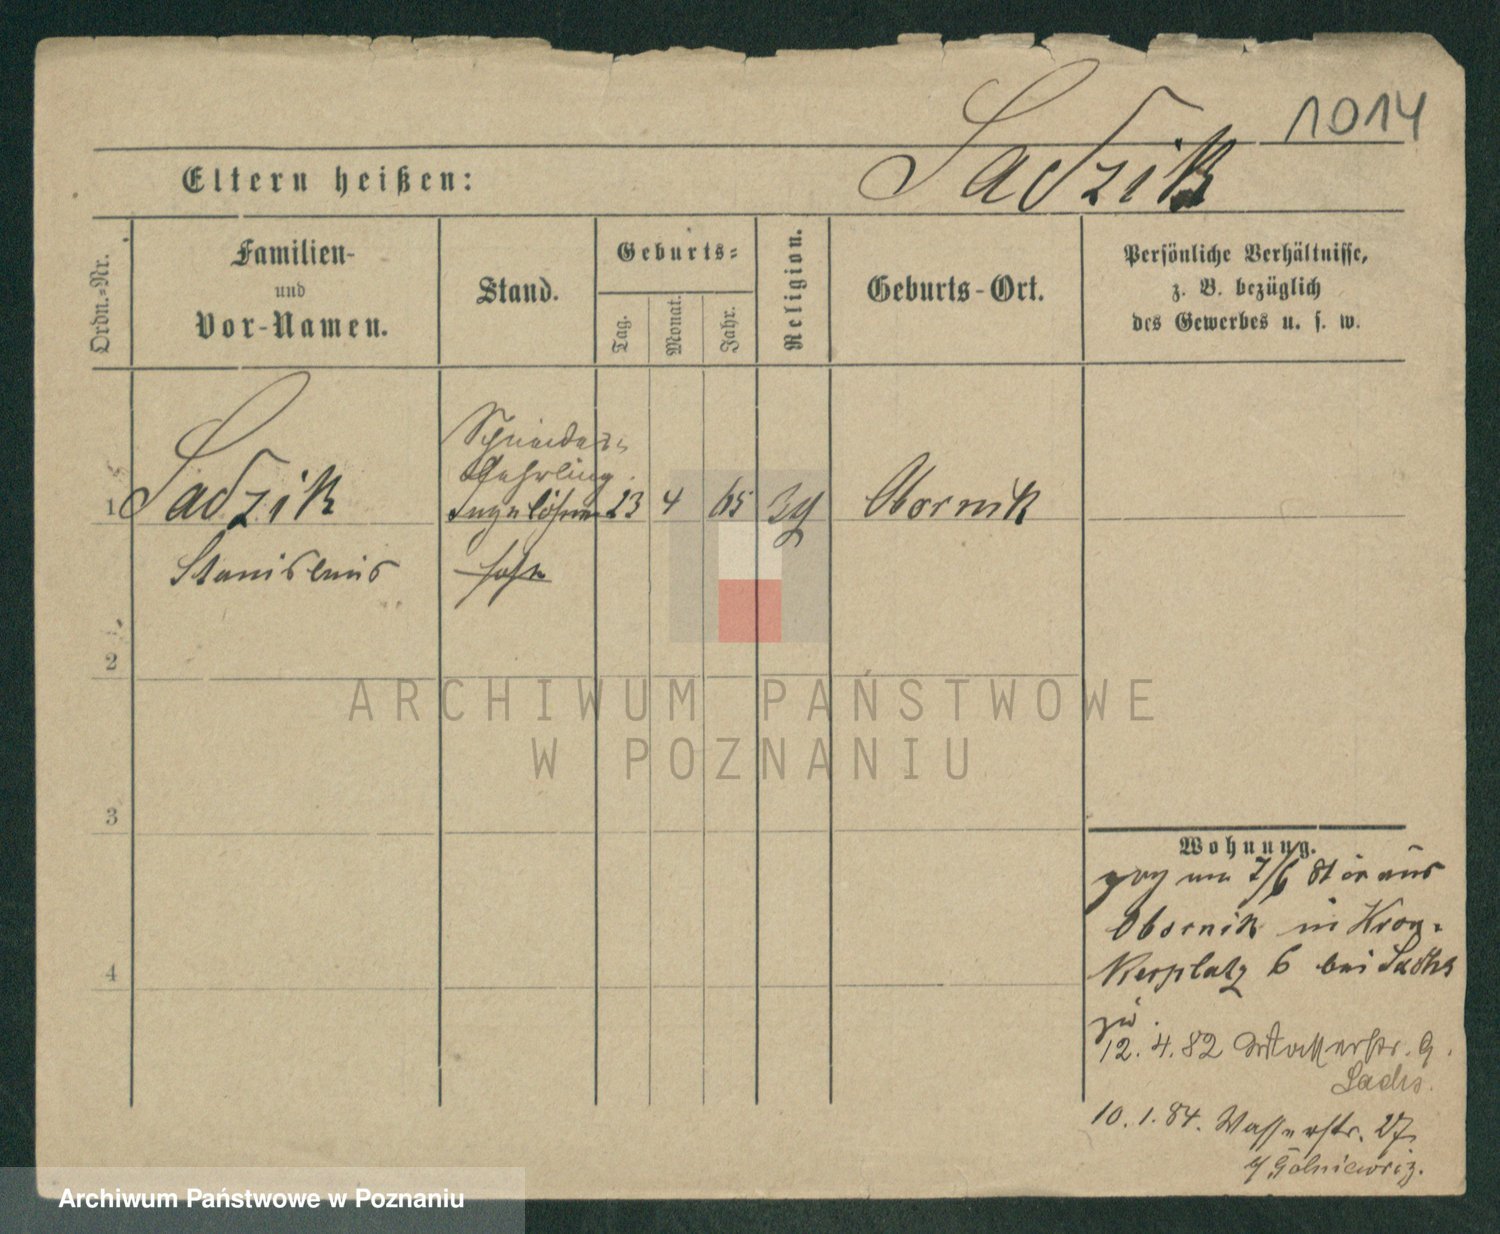 1014
Eltern heißen: Sadzik
Ordn.-Nr.
Familien-
und
Vor-Namen.
Stand.
Geburts-
Tag.
Monat.
Jahr.
Religion.
Geburts-Ort.
Persönliche Verhältnisse,
z. B. bezüglich
des Gewerbes u. s. w.
Schneider-
Lehrling
1 Sadzik 23 4 65 Obornik
Stanislaus
2
3
4
ARCHIWUM PAŃSTWOWE
W POZNANIU
Wohnung.
zog am 7/6 81 aus
Obornik in Kron-
kerplatz 6 bei Sachs
zu.
12. 4. 82 9.
Sachs.
10. 1. 84. Wasserstr. 27
Archiwum Państwowe w Poznaniu